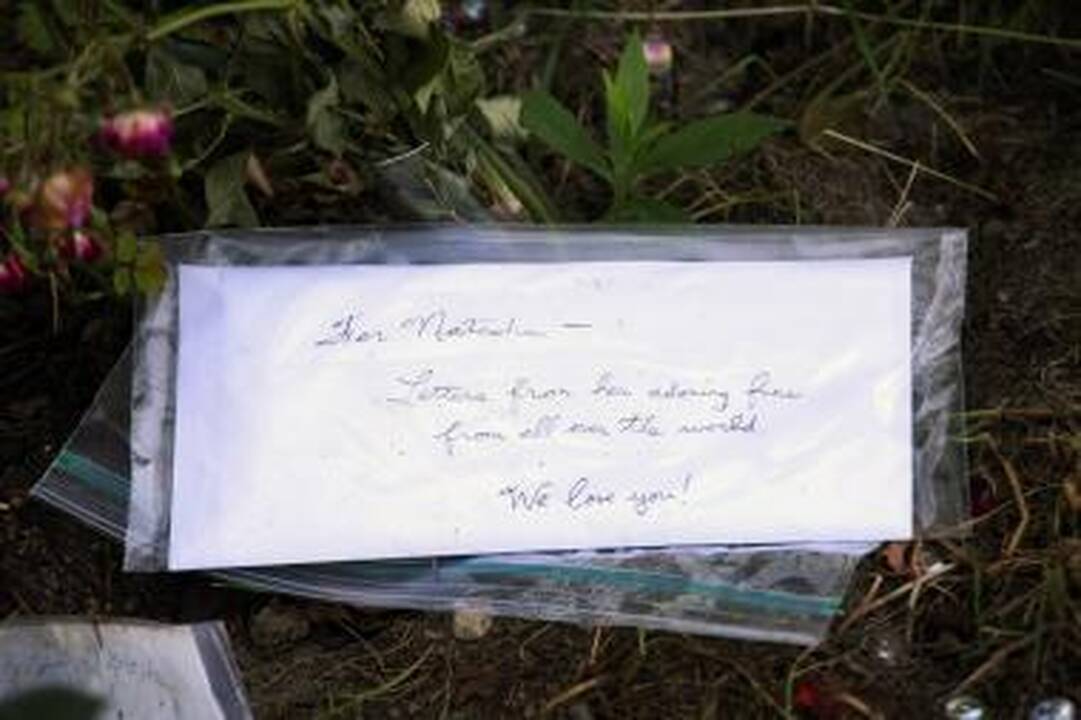 For Natasha —
Letters from her adoring fans
from all over the world
We love you!